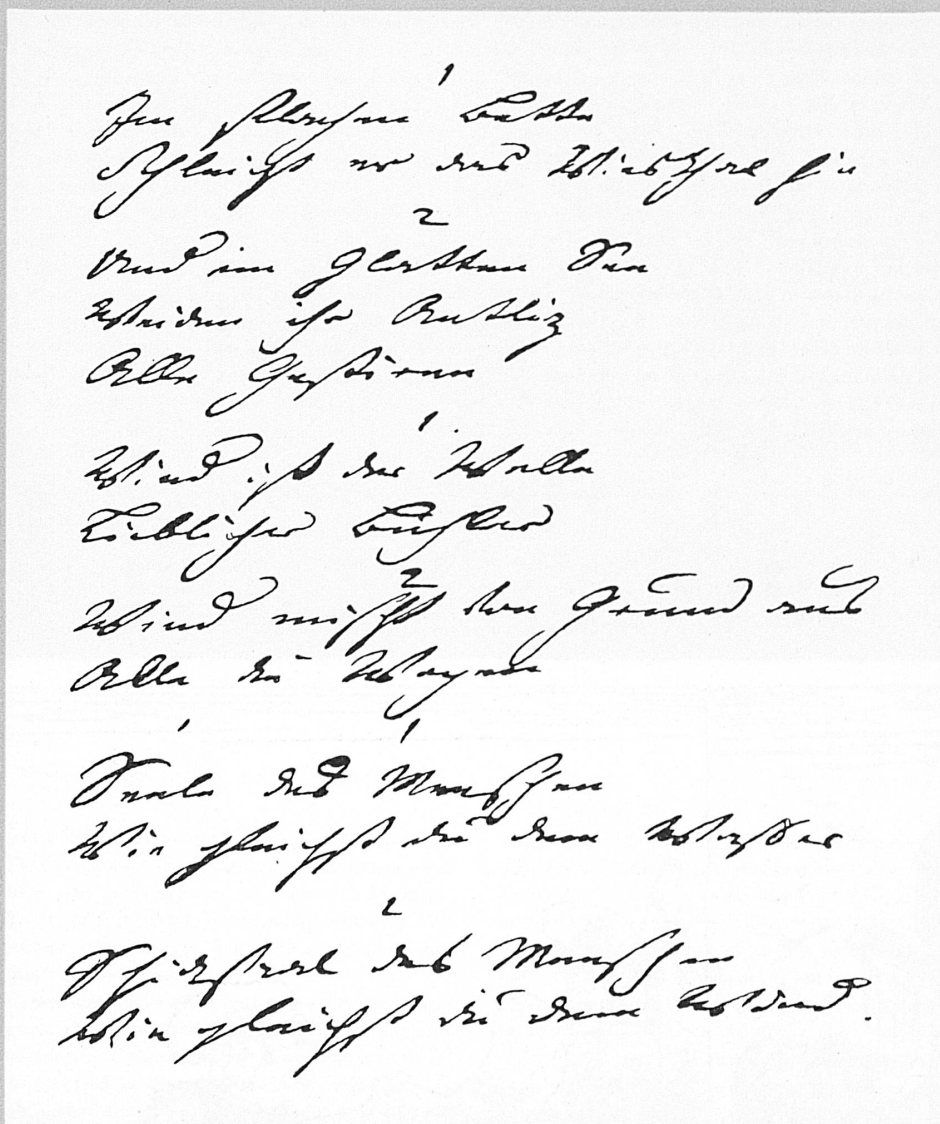 1
Im flachen Bette
Schleicht er das Wiesthal hin
2
Und im glatten See
Weiden ihr Antliz
Alle Gestirne
1
Wind ist der Welle
Lieblicher Buhler
2
Wind mischt von Grund aus
Alle die Wogen
1 1
Seele des Menschen
Wie gleichst du dem Wasser
2
Schicksaal des Menschen
Wie gleichst du dem Wind.